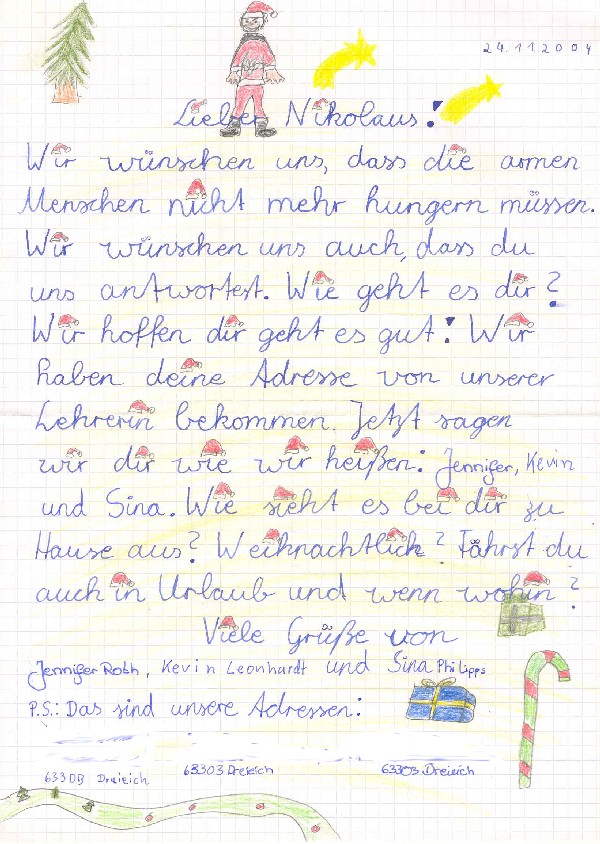 24.11.2004
Lieber Nikolaus!
Wir wünschen uns, dass die armen
Menschen nicht mehr hungern müssen.
Wir wünschen uns auch, dass du
uns antwortest. Wie geht es dir?
Wir hoffen dir geht es gut! Wir
haben deine Adresse von unserer
Lehrerin bekommen. Jetzt sagen
wir dir wie wir heißen: Jennifer, Kevin
und Sina. Wie sieht es bei dir zu
Hause aus? Weihnachtlich? Fährst du
auch in Urlaub und wenn wohin?
Viele Grüße von
Jennifer Roth, Kevin Leonhardt und Sina Philipps
P.S.: Das sind unsere Adressen:
63303 Dreieich 63303 Dreieich 63303 Dreieich